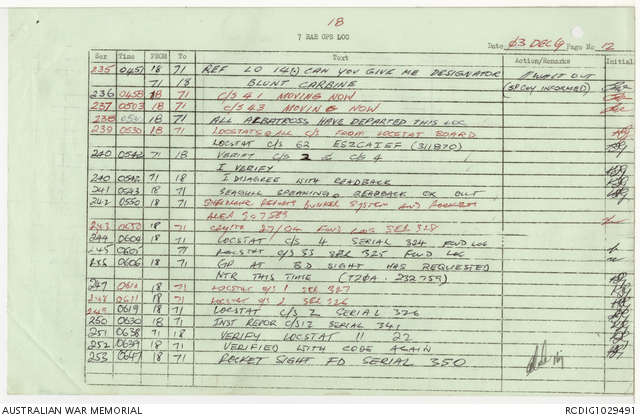 18
7 RAR OPS LOG
Date 03 DEC Page No 12
Ser Time FROM To Text Action/Remarks Initial
235 0457 18 71 REF LO 14 CAN YOU GIVE ME DESIGNATOR WAIT OUT
71 18 BLUNT CARBINE (BPCKY INFORMED)
236 0458 18 71 C/S 42 MOVING NOW
237 0503 18 71 C/S 43 MOVING NOW
238 18 71 ALL ALBATROSS HAVE DEPARTED THIS LOC
239 0530 18 71 LOCSTATS ALL C/S FROM LOCSTAT BOARD
LOCSTAT C/S 62 (311870)
240 0542 71 18 VERIFY C/S 2 & C/S 4
I VERIFY
240 0542 71 18 I DISAGREE WITH READBACK
241 0543 18 71 SEAGULL SPEAKING READBACK OK OUT
242 0550 18 71 REPORTS BUNKER SYSTEM AND
AREA 297589
243 18 71 27/04 FWD LOG SER 328
244 0604 18 71 LOCSTAT C/S 4 SERIAL 324 FWD LOG
245 18 71 LOCSTAT C/S 33 SER 325 FWD LOG
246 0606 18 71 GP AT BD SIGHT HAS REQUESTED
NTR THIS TIME (T20A. 232759)
247 0610 18 71 LOCSTAT C/S 1 SER 327
248 0611 18 71 LOCSTAT C/S 2 SER 326
249 0619 18 71 LOCSTAT C/S 2 SERIAL 326
250 0630 18 71 INST REPOR C/S12 SERIAL 341
251 0638 71 18 VERIFY LOCSTAT 11 22
252 0639 18 71 VERIFIED WITH CODE AGAIN
253 0647 18 71 ROCKET SIGHT FD SERIAL 350
AUSTRALIAN WAR MEMORIAL
RCDIG1029491